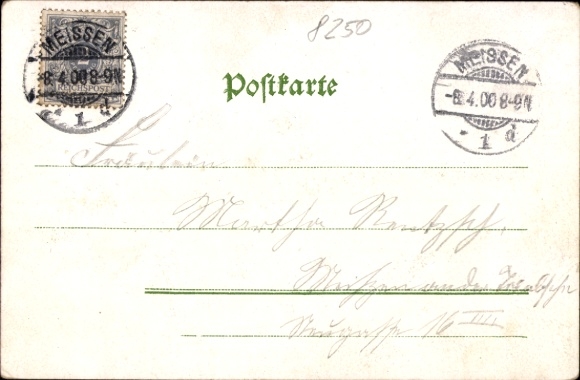 8250
MEISSEN
8.4.00 8-9N
1 d
REICHSPOST
MEISSEN
-8.4.00 8-9N
1 d
Postkarte
Fräulein
Martha Rentzsch,
Meißen an der
Neugasse 16 III